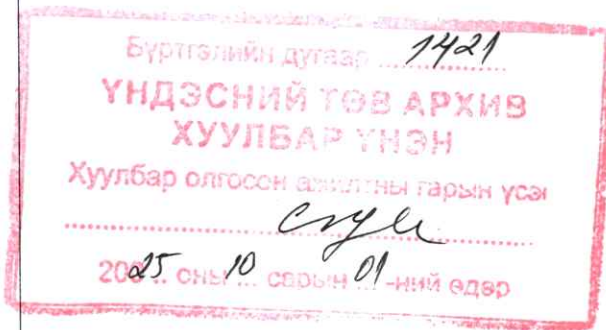 Бүртгэлийн дугаар ... 1421
ҮНДЭСНИЙ ТӨВ АРХИВ
ХУУЛБАР ҮНЭН
Хуулбар олгосон ажилтны гарын үсэг
2025 оны 10 сарын 01 -ний өдөр